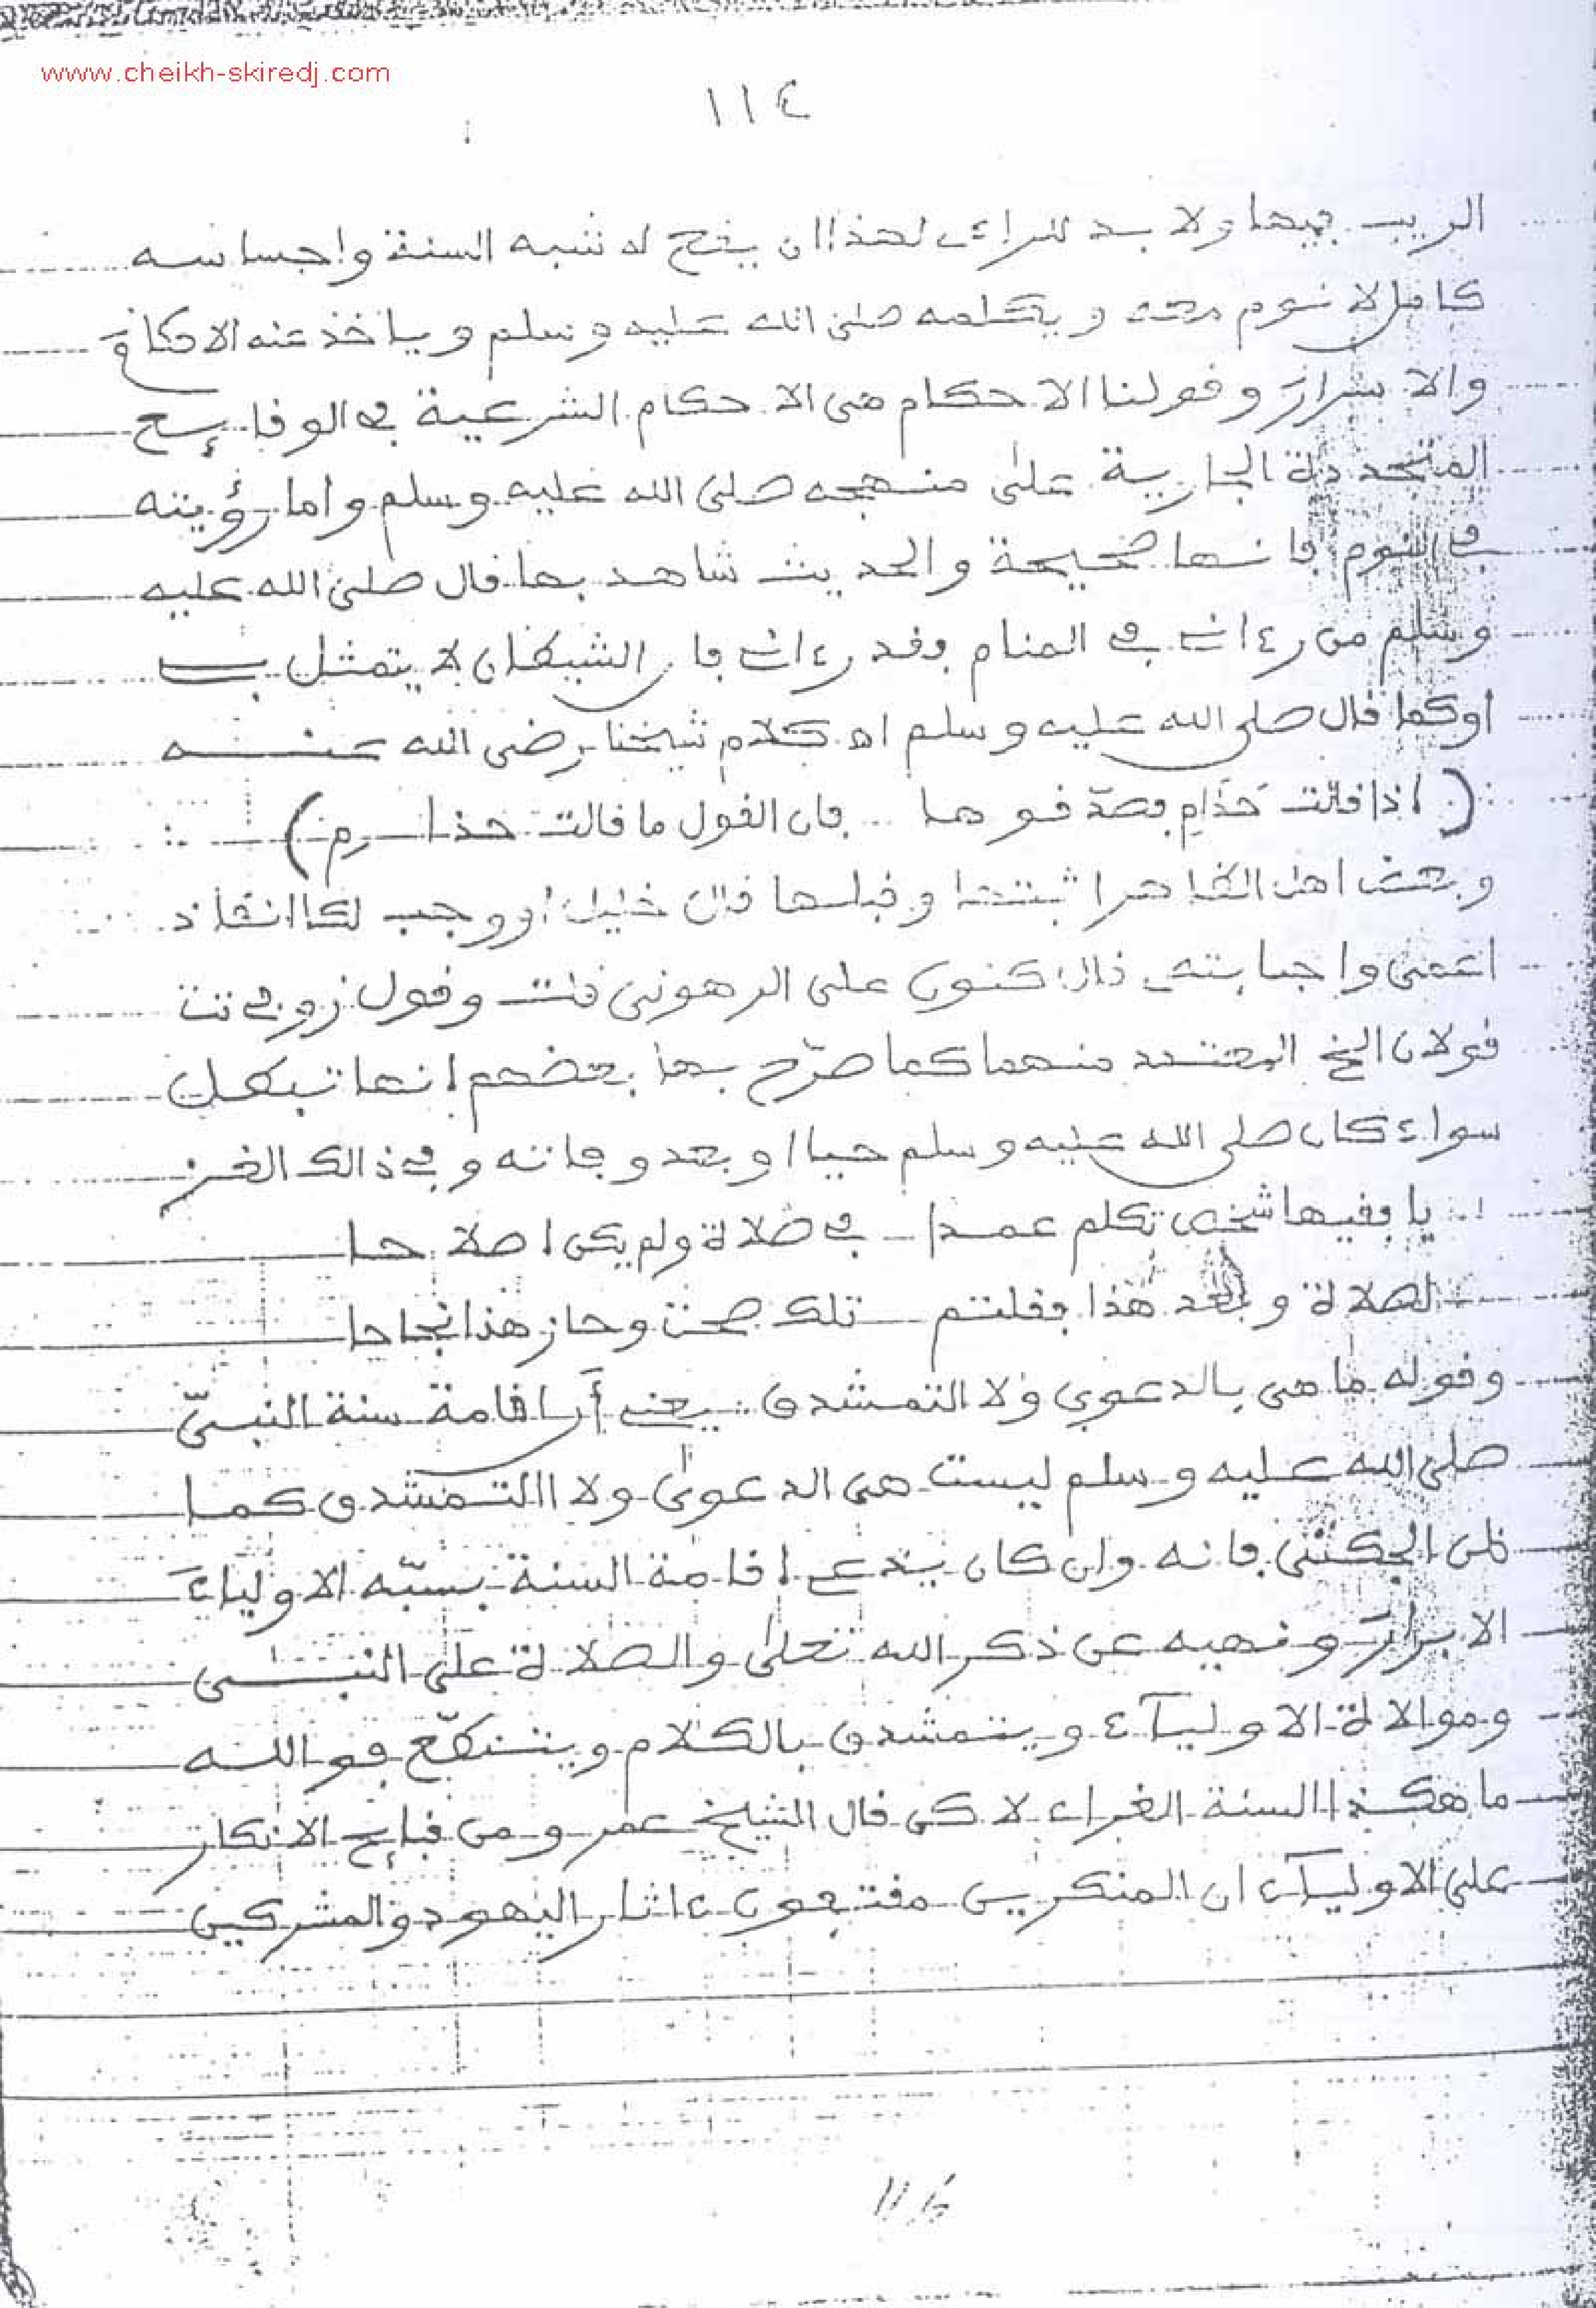 www.cheikh-skiredj.com
١١٤
الريب فيها ولا بد للراءى لهذا ان يقع له شبه السنة واحساسه
كامل لا نوم معه ويكلمه صلى الله عليه وسلم وياخذ عنه الاحكام
والاسرار وقولنا الاحكام هى الاحكام الشرعية في الوقايع
المتجددة الجارية على منهجه صلى الله عليه وسلم واما رؤيته
في النوم فانها صحيحة والحديث شاهد بها قال صلى الله عليه
وسلم من رءانى في المنام فقد رءانى فان الشيطان لا يتمثل بى
اوكما قال صلى الله عليه وسلم اه كلام شيخنا رضى الله عنه
(اذا قالت حَذَامِ فصدّقوها فان القول ما قالت حذام)
وبعض اهل الظاهر اثبتها وقبلها قال خليل او وجب لانقاذ
اعمى واجابته قال كنون على الرهونى قلت وقول زو في تت
قولان الخ المعتمد منهما كما صرّح بها بعضهم انها تبطل
سواء كان صلى الله عليه وسلم حيا او بعد وفاته وفي ذالك الغز
يا فقيها شخص تكلم عمدا في صلاة ولم يكن اصلاحا
لصلاة وبعد هذا فقلتم تلك صحت وحاز هذا نجاحا
وقوله ما هى بالدعوى ولا التمشدق يعنى أن اقامة سنة النبىّ
صلى الله عليه وسلم ليست هى الدعوى ولا التمشدق كما
ظن الجكنى فانه وان كان يدعى اقامة السنة بسبّه الاولياءَ
الابرارَ ونهيه عن ذكر الله تعلى والصلاة على النبى
وموالاة الاوليآء ويتمشدق بالكلام ويتنطّع فو الله
ما هكذا السنة الغراء لاكن قال الشيخ عمر ومن قبايح الانكار
على الاوليآء ان المنكرين مقتفون ءاثار اليهود والمشركين
116